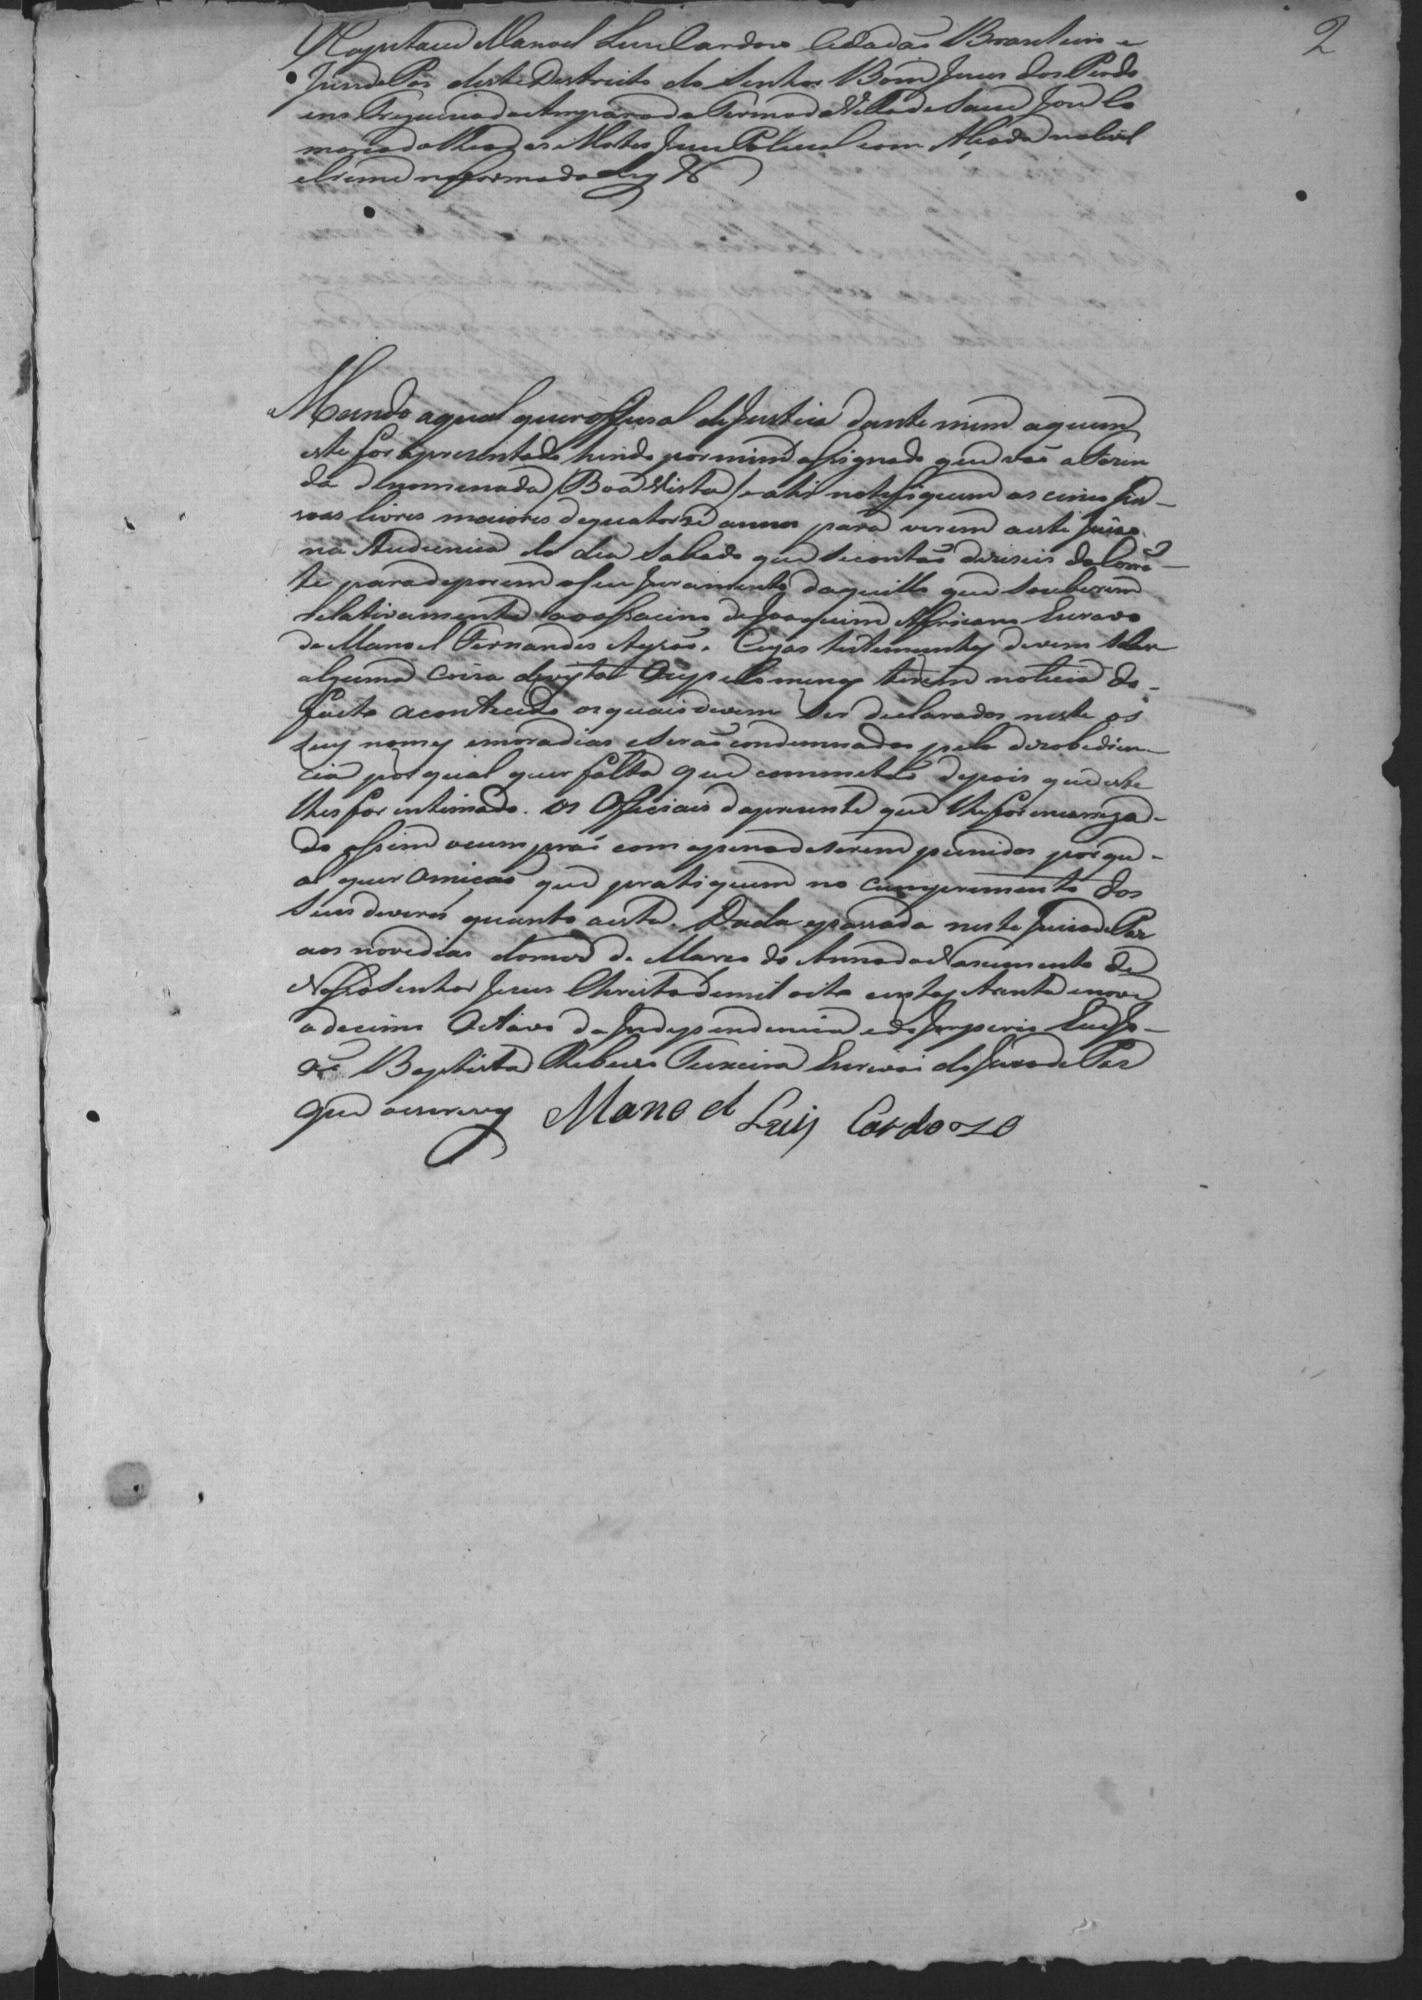 2
O Capitam Manoel Luis Cardozo Cidadão Brasileiro e
Juis de Pas deste Destricto do Senhor Bom Jesus dos Perdo
ens Freguezia do Amparo do Termo da Villa de Sam José Co
marca do Rio das Mortes Juis Policial com Alçada no Civel
e Crime na forma da Ley &
Mando a qual quer official de Justiça dante mim a quem
este for apresentado hindo por mim assignado que vão a Fazen
da denomenada (Boa Vista) e ahi notefiquem as cinco pes-
soas livres maiores de quatorze annos para virem a este Juiso
na Audiencia do dia Sabado que se contão deseseis do Corrẽ-
te para deporem o seu Juramento daquillo que souberem
relativamente ao assacino de Joaquim Africano Escravo
de Manoel Fernandes Ayrão. Cujas testemunhas devem saber
alguma coisa de vista Ou pello menos terem noticia do
facto acontecido os quais devem ser declarados neste os
seus nomes e moradias e serão condemnados pela desobedien-
cia por qual quer falta que cometão depois que este
lhes for intimado. Os Officiais da presente que lhe for encarrega-
do assim o cumprão com a pena de serem punidos por qu-
al quer Omicão que pratiquem no cumprimento dos
seus deveres quanto a esta. Dada e passada neste Juiso de Pas
aos nove dias do mes de Março do Anno do Nascimento de
Nosso Senhor Jesus Christo de mil oito centos e trinta e nove
o decimo Oitavo da Independencia e do Imperio Eu Jo-
sé Baptista Ribeiro Teixeira Escrivão do Juiso de Pas
que o escrevy Manoel Luis Cardozo